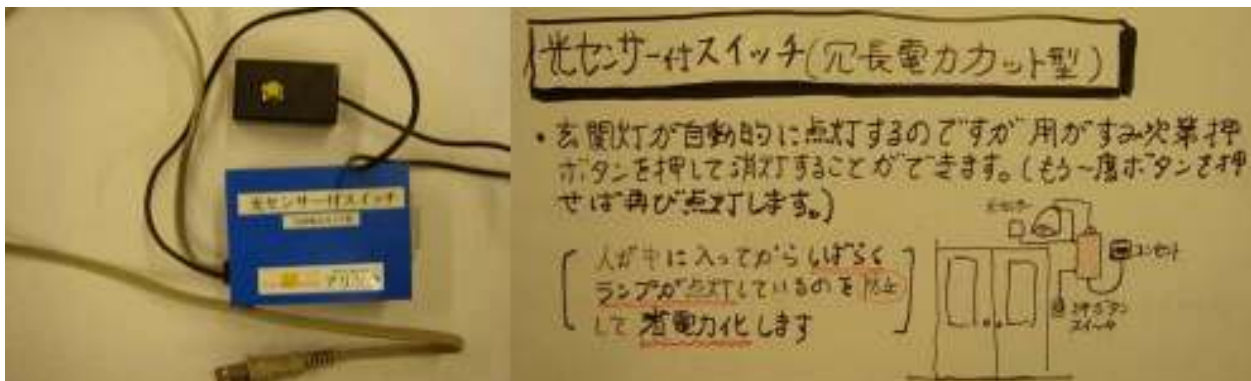 光センサー付スイッチ
光センサー付スイッチ(冗長電力カット型)
・玄関灯が自動的に点灯するのですが用がすみ次第押
ボタンを押して消灯することができます。(もう一度ボタンを押
せば再び点灯します。)
人が中に入ってからしばらく
ランプが点灯しているのを防止
して省電力化します
光センサー
コンセント
押ボタン
スイッチ